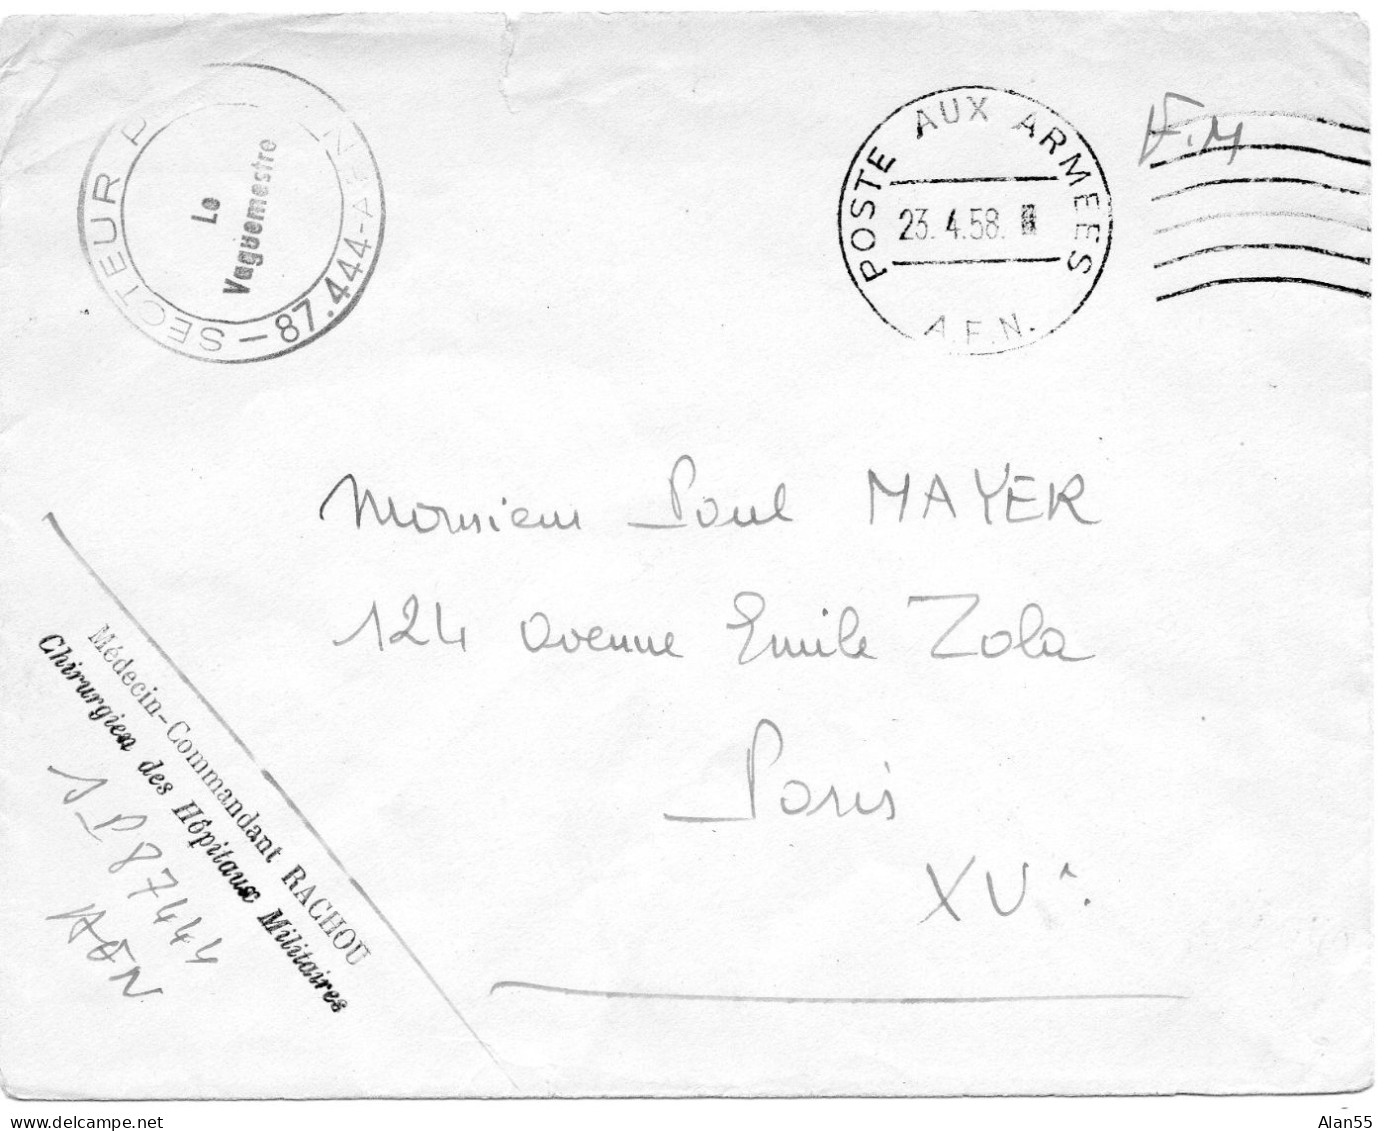 SECTEUR P
-87.444-A.F.N
Le
Vaguemestre
POSTE AUX ARMEES
23. 4.58.
A.F.N.
F.M
Monsieur Paul MAYER
124 avenue Emile Zola
Paris
XVe.
Médecin-Commandant RACHOU
Chirurgien des Hôpitaux Militaires
SP 87444
AFN
delcampe.net
Alan55